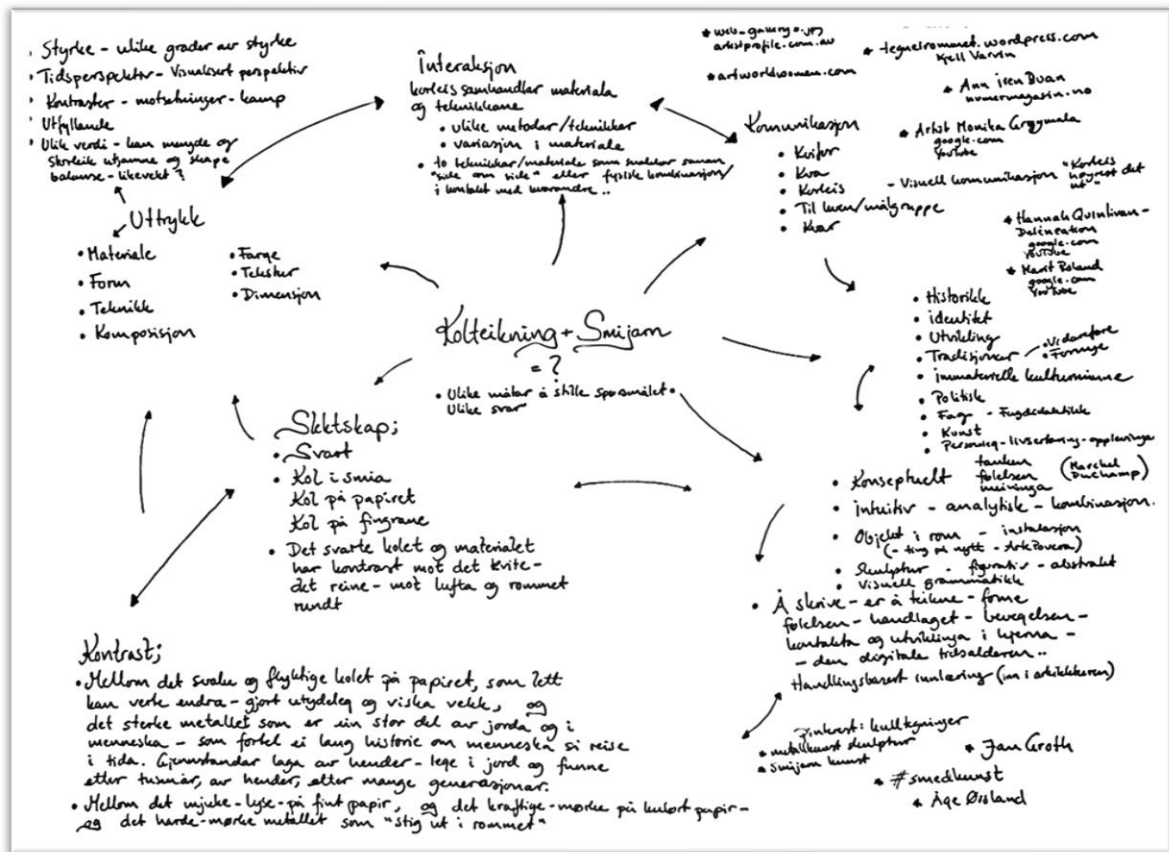 • Styrke - ulike grader av styrke
• Tidsperspektiv - Visualisert perspektiv
• Kontraster - motsetninger - kamp
• Utfyllande
• Ulik verdi - kan mengde og
storleik utjamne og skape
balanse - likevekt?
Uttrykk
• Materiale
• Form
• Teknikk
• Komposisjon
• Farge
• Tekstur
• Dimensjon
Interaksjon
korleis samhandlar materiala
og teknikkane
• ulike metodar/teknikkar
• variasjon i materiale
• to teknikkar/materiale som snakkar saman
"side om side" eller fysisk kombinasjon/
i kontakt med kvarandre..
* web-gallery
artistprofile.com.au
* artworldwomen.com
* tegnerommet.wordpress.com
Kjell Varvin
* Ann Iren Buan
numermagasin.no
* Artist Monika Grzymala
google.com
YouTube
Kommunikasjon
• Kvifor
• Kva
• Korleis - Visuell kommunikasjon "Korleis
det
ut"
• Til kven/målgruppe
• Kvar
* Hannah Quinlivan -
Delineation
google.com
YouTube
* Marit Roland
google.com
YouTube
Kolteikning + Smijarn
= ?
• Ulike måtar å stille spørsmålet •
Ulike svar
• Historikk
• identitet
• Utvikling
• Tradisjonar - • Vidareføre
• Fornye
• immaterielle kulturminne
• Politisk
• Fag - Fagdidaktikk
• Kunst
• Personleg - livserfaring - opplevingar
Slektskap;
• Svart
• Kol i smia
Kol på papiret
Kol på fingrane
• Det svarte kolet og materialet
har kontrast mot det kvite -
det reine - mot lufta og rommet
rundt
• Konseptuelt tanken
følelsen
meininga
(Marchel
Duchamp)
• intuitiv - analytisk - kombinasjon.
• Objekt i rom - instalasjon
(- ting på nytt - Arte Povera)
• Skulptur - figurativ - abstrakt
• Visuell grammatikk
• Å skrive - er å teikne - forme
følelsen - handlaget - bevegelsen -
kontakta og utviklinga i hjerna -
- den digitale tidsalderen..
Handlingsbasert innlæring (inn i artikkelen)
Kontrast;
• Mellom det svake og flyktige kolet på papiret, som lett
kan verte endra - gjort utydeleg og viska vekk, og
det sterke metallet som er ein stor del av jorda og i
menneska - som fortel ei lang historie om menneska si reise
i tida. Gjennstandar laga av hender - lege i jord og funne
etter tusenår, av hender, etter mange generasjonar.
• Mellom det mjuke - lyse - på fint papir, og det kraftige - mørke på kulørt papir -
og det harde - mørke metallet som "stig ut i rommet"
pinterest: kulltegninger
* metallkunst skulptur
* smijern kunst
* Jan Groth
* #smedkunst
* Åge Ørsland